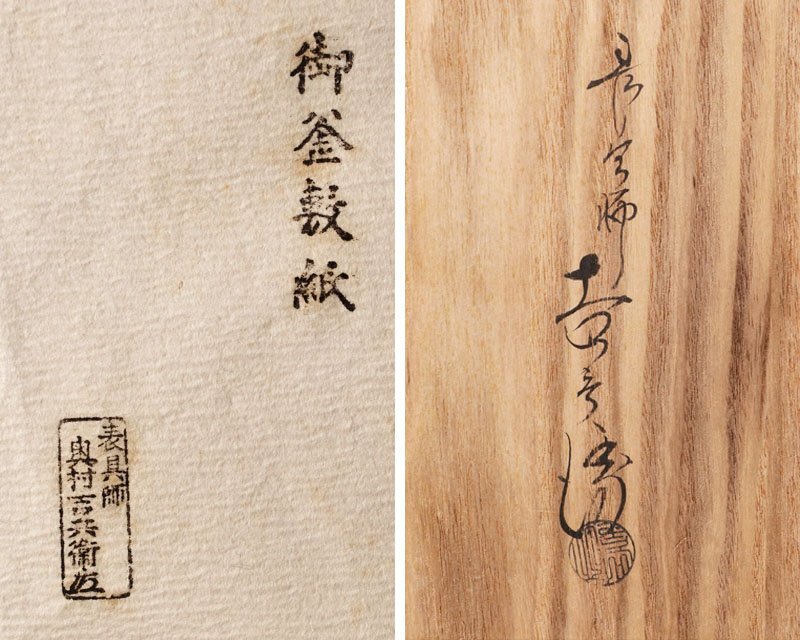 御釜敷紙
表具師
奥村吉兵衛
表具師 吉兵衛